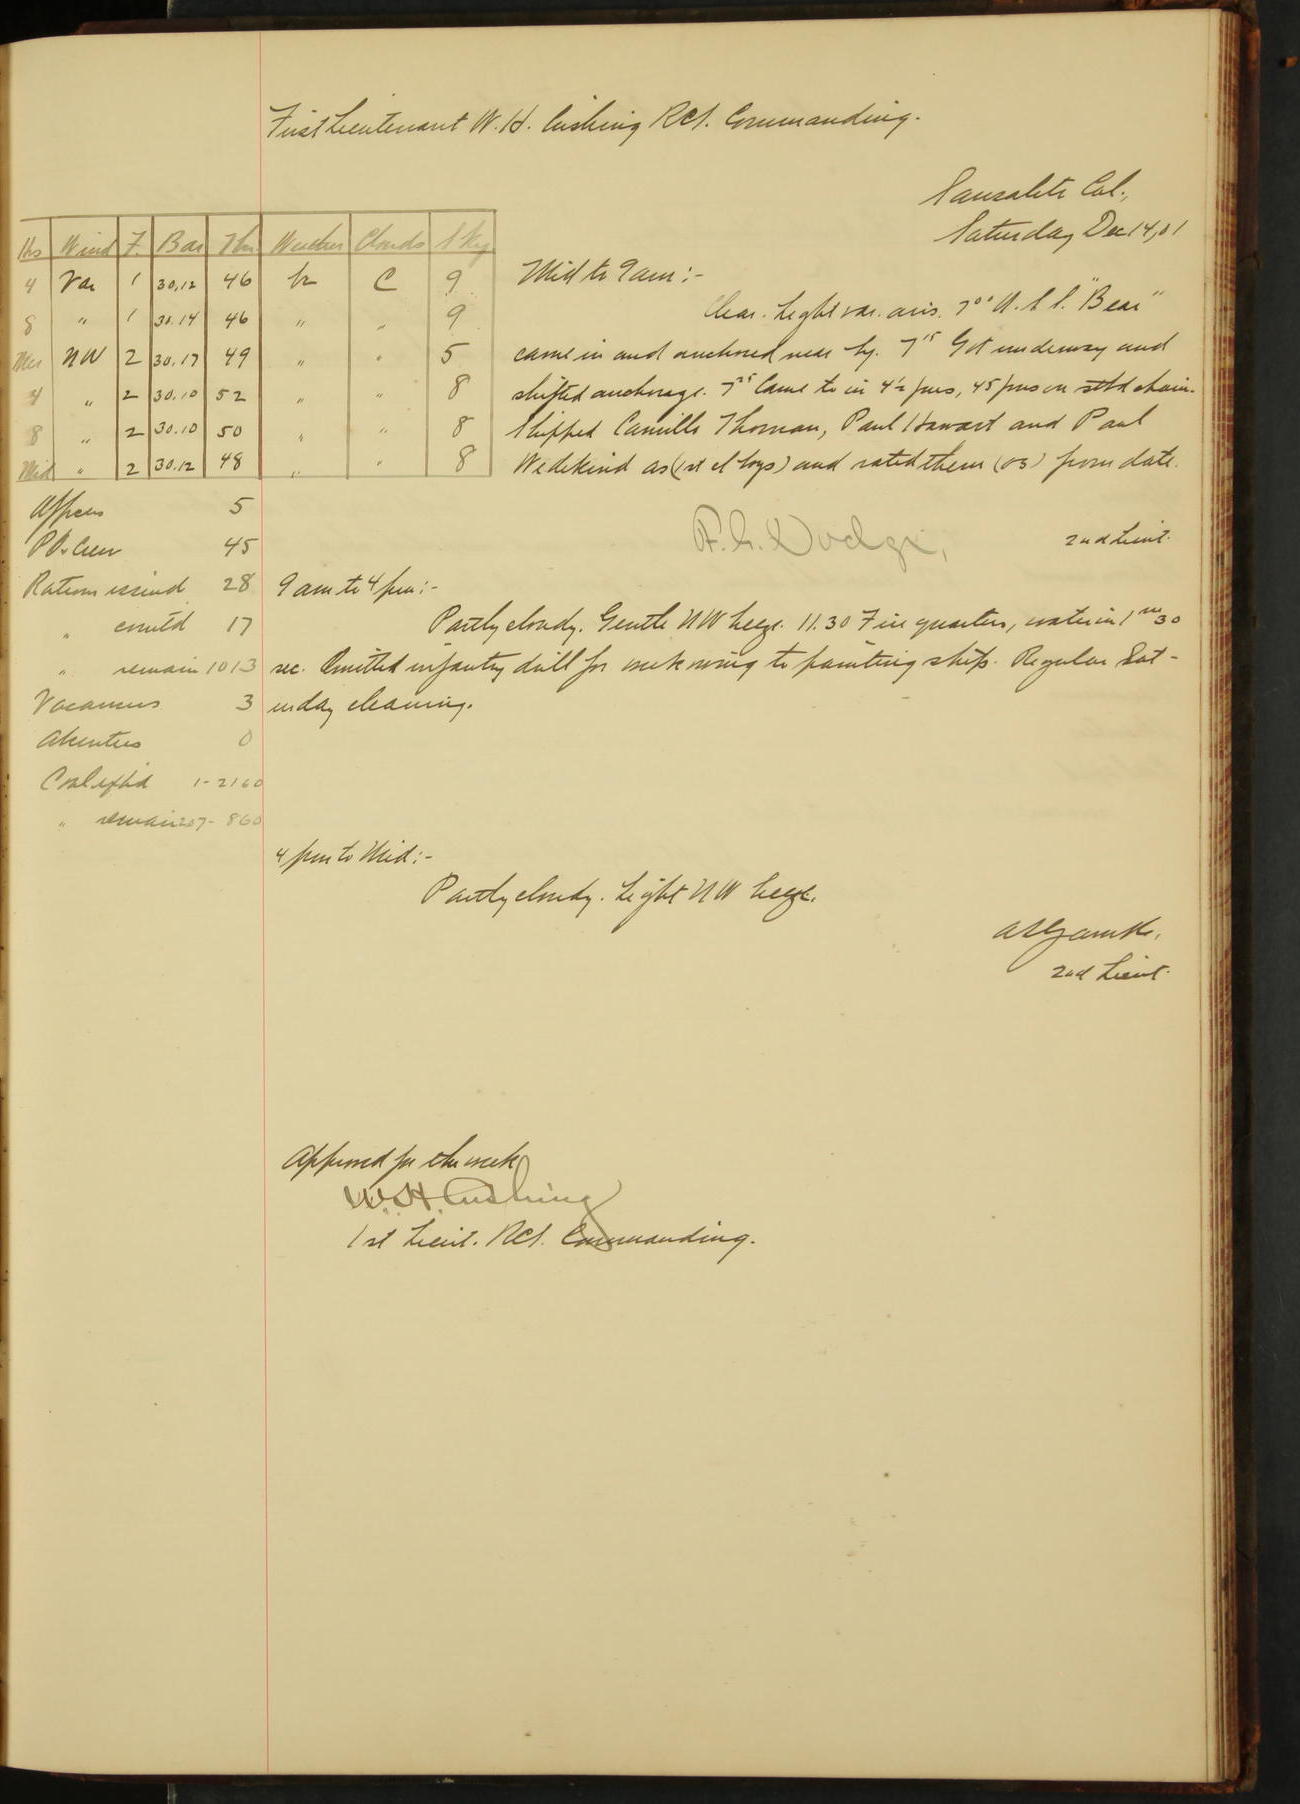 First Lieutenant W. H. Cushing RCS. Commanding.
Sausalito Cal.,
Saturday Dec 14, 01
Hrs Wind F. Bar Thr Weather Clouds Sky
4 Var 1 30.12 46 bc C 9
8 " 1 30.14 46 " " 9
Mer NW 2 30.17 49 " " 5
4 " 2 30.10 52 " " 8
8 " 2 30.10 50 " " 8
Mid " 2 30.12 48 " " 8
Officers 5
PO & Crew 45
Rations issued 28
" comtd 17
" remain 1013
Vacancies 3
Absentees 0
Coal expd 1-2160
" remain 207-860
Mid to 9 am:-
Clear. Light var. airs. 7⁰⁰ U.S.S. "Bear"
came in and anchored near by. 7¹⁵ Got underway and
shifted anchorage. 7²⁵ Came to in 4½ fms, 45 fms on stbd chain.
Shipped Camillo Thoman, Paul Hawart and Paul
Wedekind as (1st cl boys) and rated them (OS) from date.
F. G. Dodge,
2nd Lieut.
9 am to 4 pm:-
Partly cloudy. Gentle NW breeze. 11.30 Fire quarters, water in 1ᵐ 30
sec. Omitted infantry drill for week owing to painting ship. Regular Sat-
urday cleaning.
4 pm to Mid:-
Partly cloudy. Light NW breeze.
2nd Lieut.
Approved for the week
W. H. Cushing
1st Lieut. RCS. Commanding.